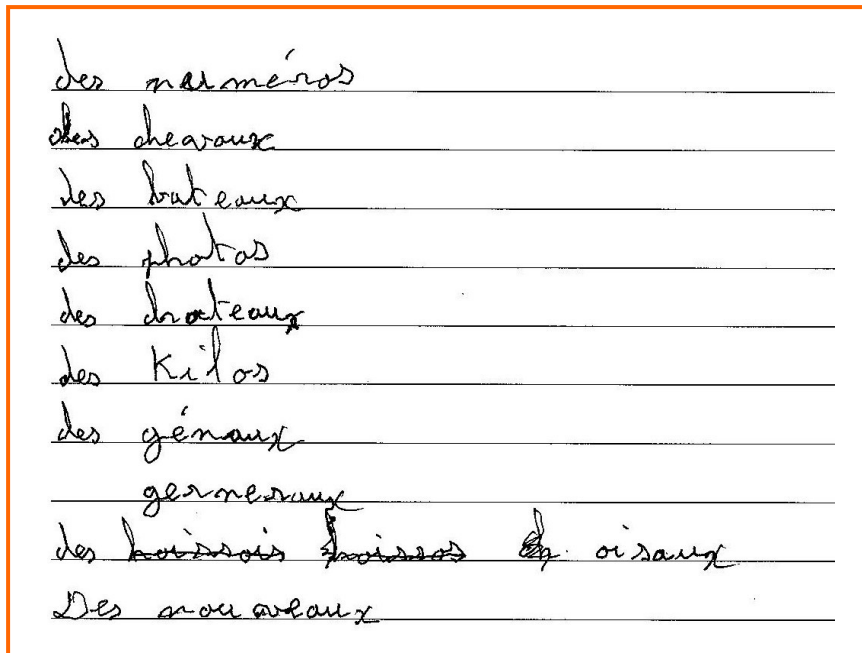 des numéros
des chevaux
des bateaux
des photos
des
des Kilos
des génaux
gerneraux
des hoissois hoissos oisaux
Des nouveaux